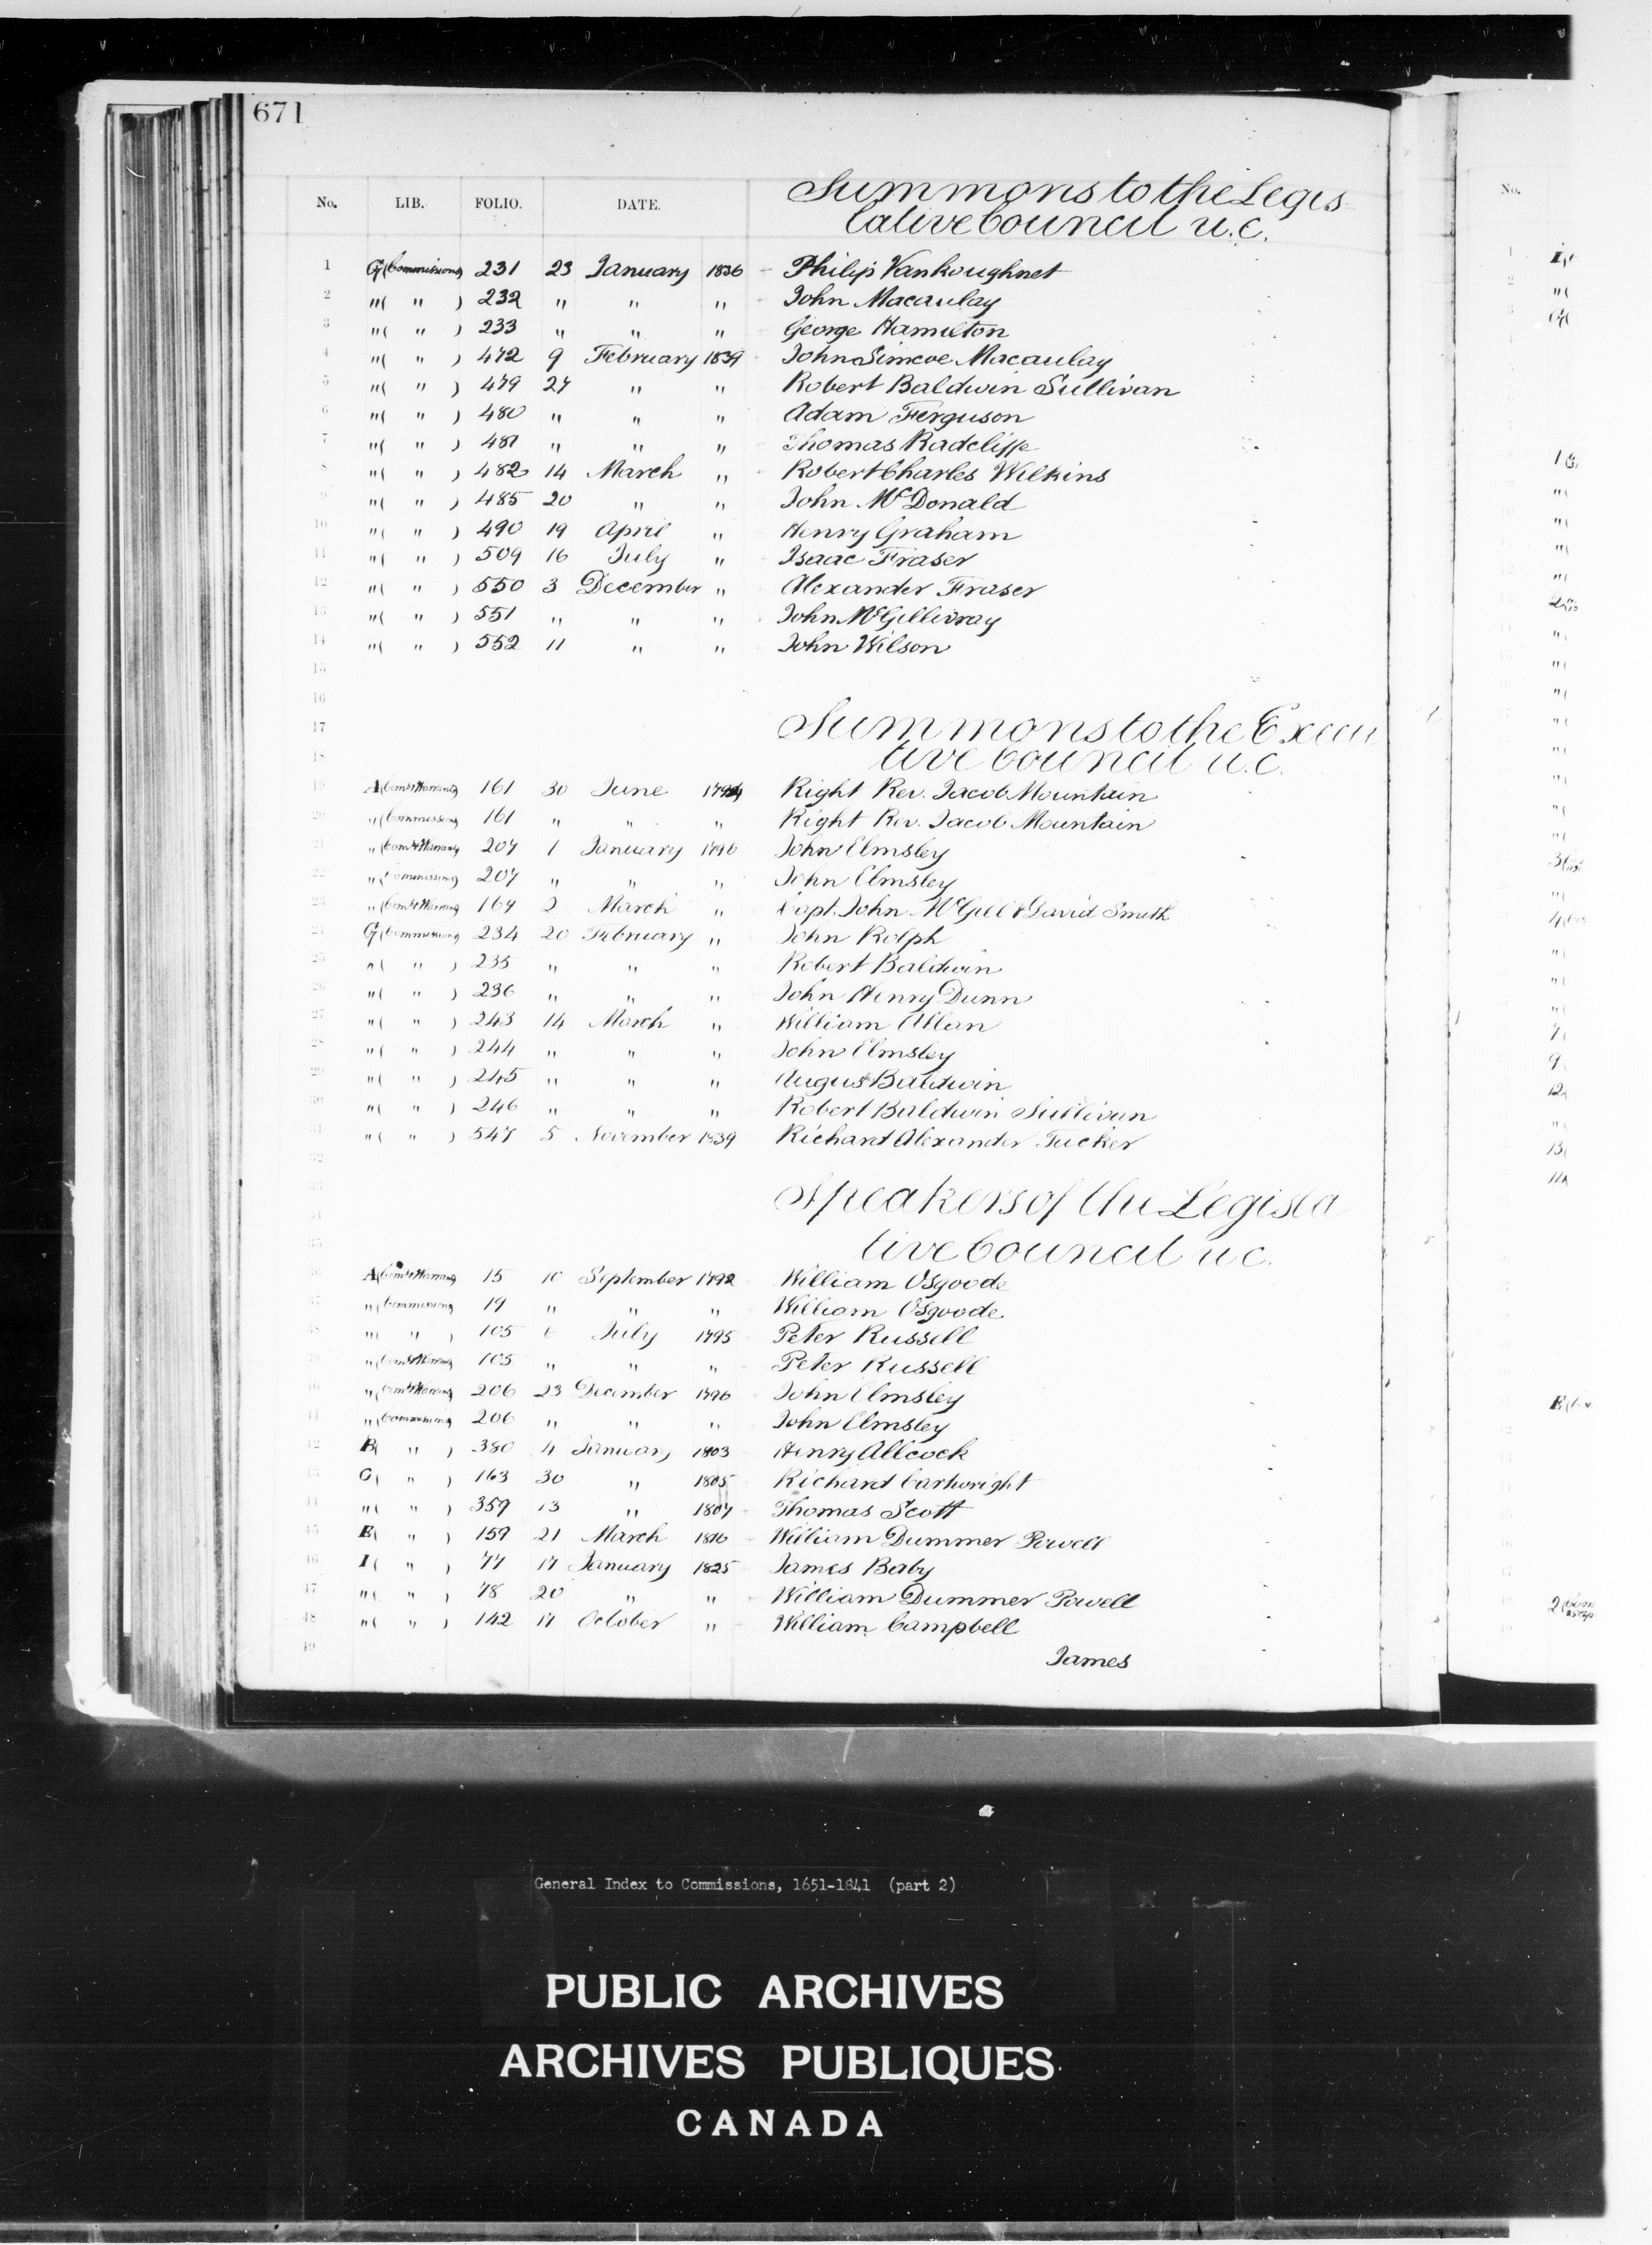 671
No. LIB. FOLIO. DATE. Summons to the Legis-
lative Council U.C.
No.
1 G (Commissions) 231 23 January 1836 Philip Vankoughnet
2 "( " ) 232 " " " John Macaulay
3 "( " ) 233 " " " George Hamilton
4 "( " ) 472 9 February 1839 John Simcoe Macaulay
5 "( " ) 479 27 " " Robert Baldwin Sullivan
6 "( " ) 480 " " " Adam Ferguson
7 "( " ) 481 " " " Thomas Radcliffe
8 "( " ) 482 14 March " Robert Charles Wilkins
9 "( " ) 485 20 " " John McDonald
10 "( " ) 490 19 April " Henry Graham
11 "( " ) 509 16 July " Isaac Fraser
12 "( " ) 550 3 December " Alexander Fraser
13 "( " ) 551 " " " John McGillivray
14 "( " ) 552 11 " " John Wilson
15
16
17 Summons to the Execu
18 tive Council U.C.
19 A (Coms & Warrants) 161 30 June 1794 Right Rev. Jacob Mountain
20 " (Commissions) 161 " " " Right Rev. Jacob Mountain
21 " (Coms & Warrants) 207 1 January 1796 John Elmsley
22 " (Commissions) 207 " " " John Elmsley
23 " (Coms & Warrants) 164 2 March " Capt. John McGill & David Smith
24 G (Commissions) 234 20 February " John Rolph
25 "( " ) 235 " " " Robert Baldwin
26 "( " ) 236 " " " John Henry Dunn
27 "( " ) 243 14 March " William Allan
28 "( " ) 244 " " " John Elmsley
29 "( " ) 245 " " " August Baldwin
30 "( " ) 246 " " " Robert Baldwin Sullivan
31 "( " ) 547 5 November 1839 Richard Alexander Tucker
32
33 Speakers of the Legisla
34
35 tive Council U.C.
36 A (Coms & Warrants) 15 10 September 1792 William Osgoode
37 " (Commissions) 19 " " " William Osgoode
38 "( " ) 105 6 July 1795 Peter Russell
39 " (Coms & Warrants) 105 " " " Peter Russell
40 " (Coms & Warrants) 206 23 December 1796 John Elmsley
41 " (Commissions) 206 " " " John Elmsley
42 B( " ) 380 4 January 1803 Henry Allcock
43 C( " ) 163 30 " 1805 Richard Cartwright
44 "( " ) 359 13 " 1807 Thomas Scott
45 E( " ) 159 21 March 1816 William Dummer Powell
46 I( " ) 77 17 January 1825 James Baby
47 "( " ) 78 20 " " William Dummer Powell
48 "( " ) 142 17 October " William Campbell
49 James
General Index to Commissions, 1651-1841 (part 2)
PUBLIC ARCHIVES
ARCHIVES PUBLIQUES
CANADA